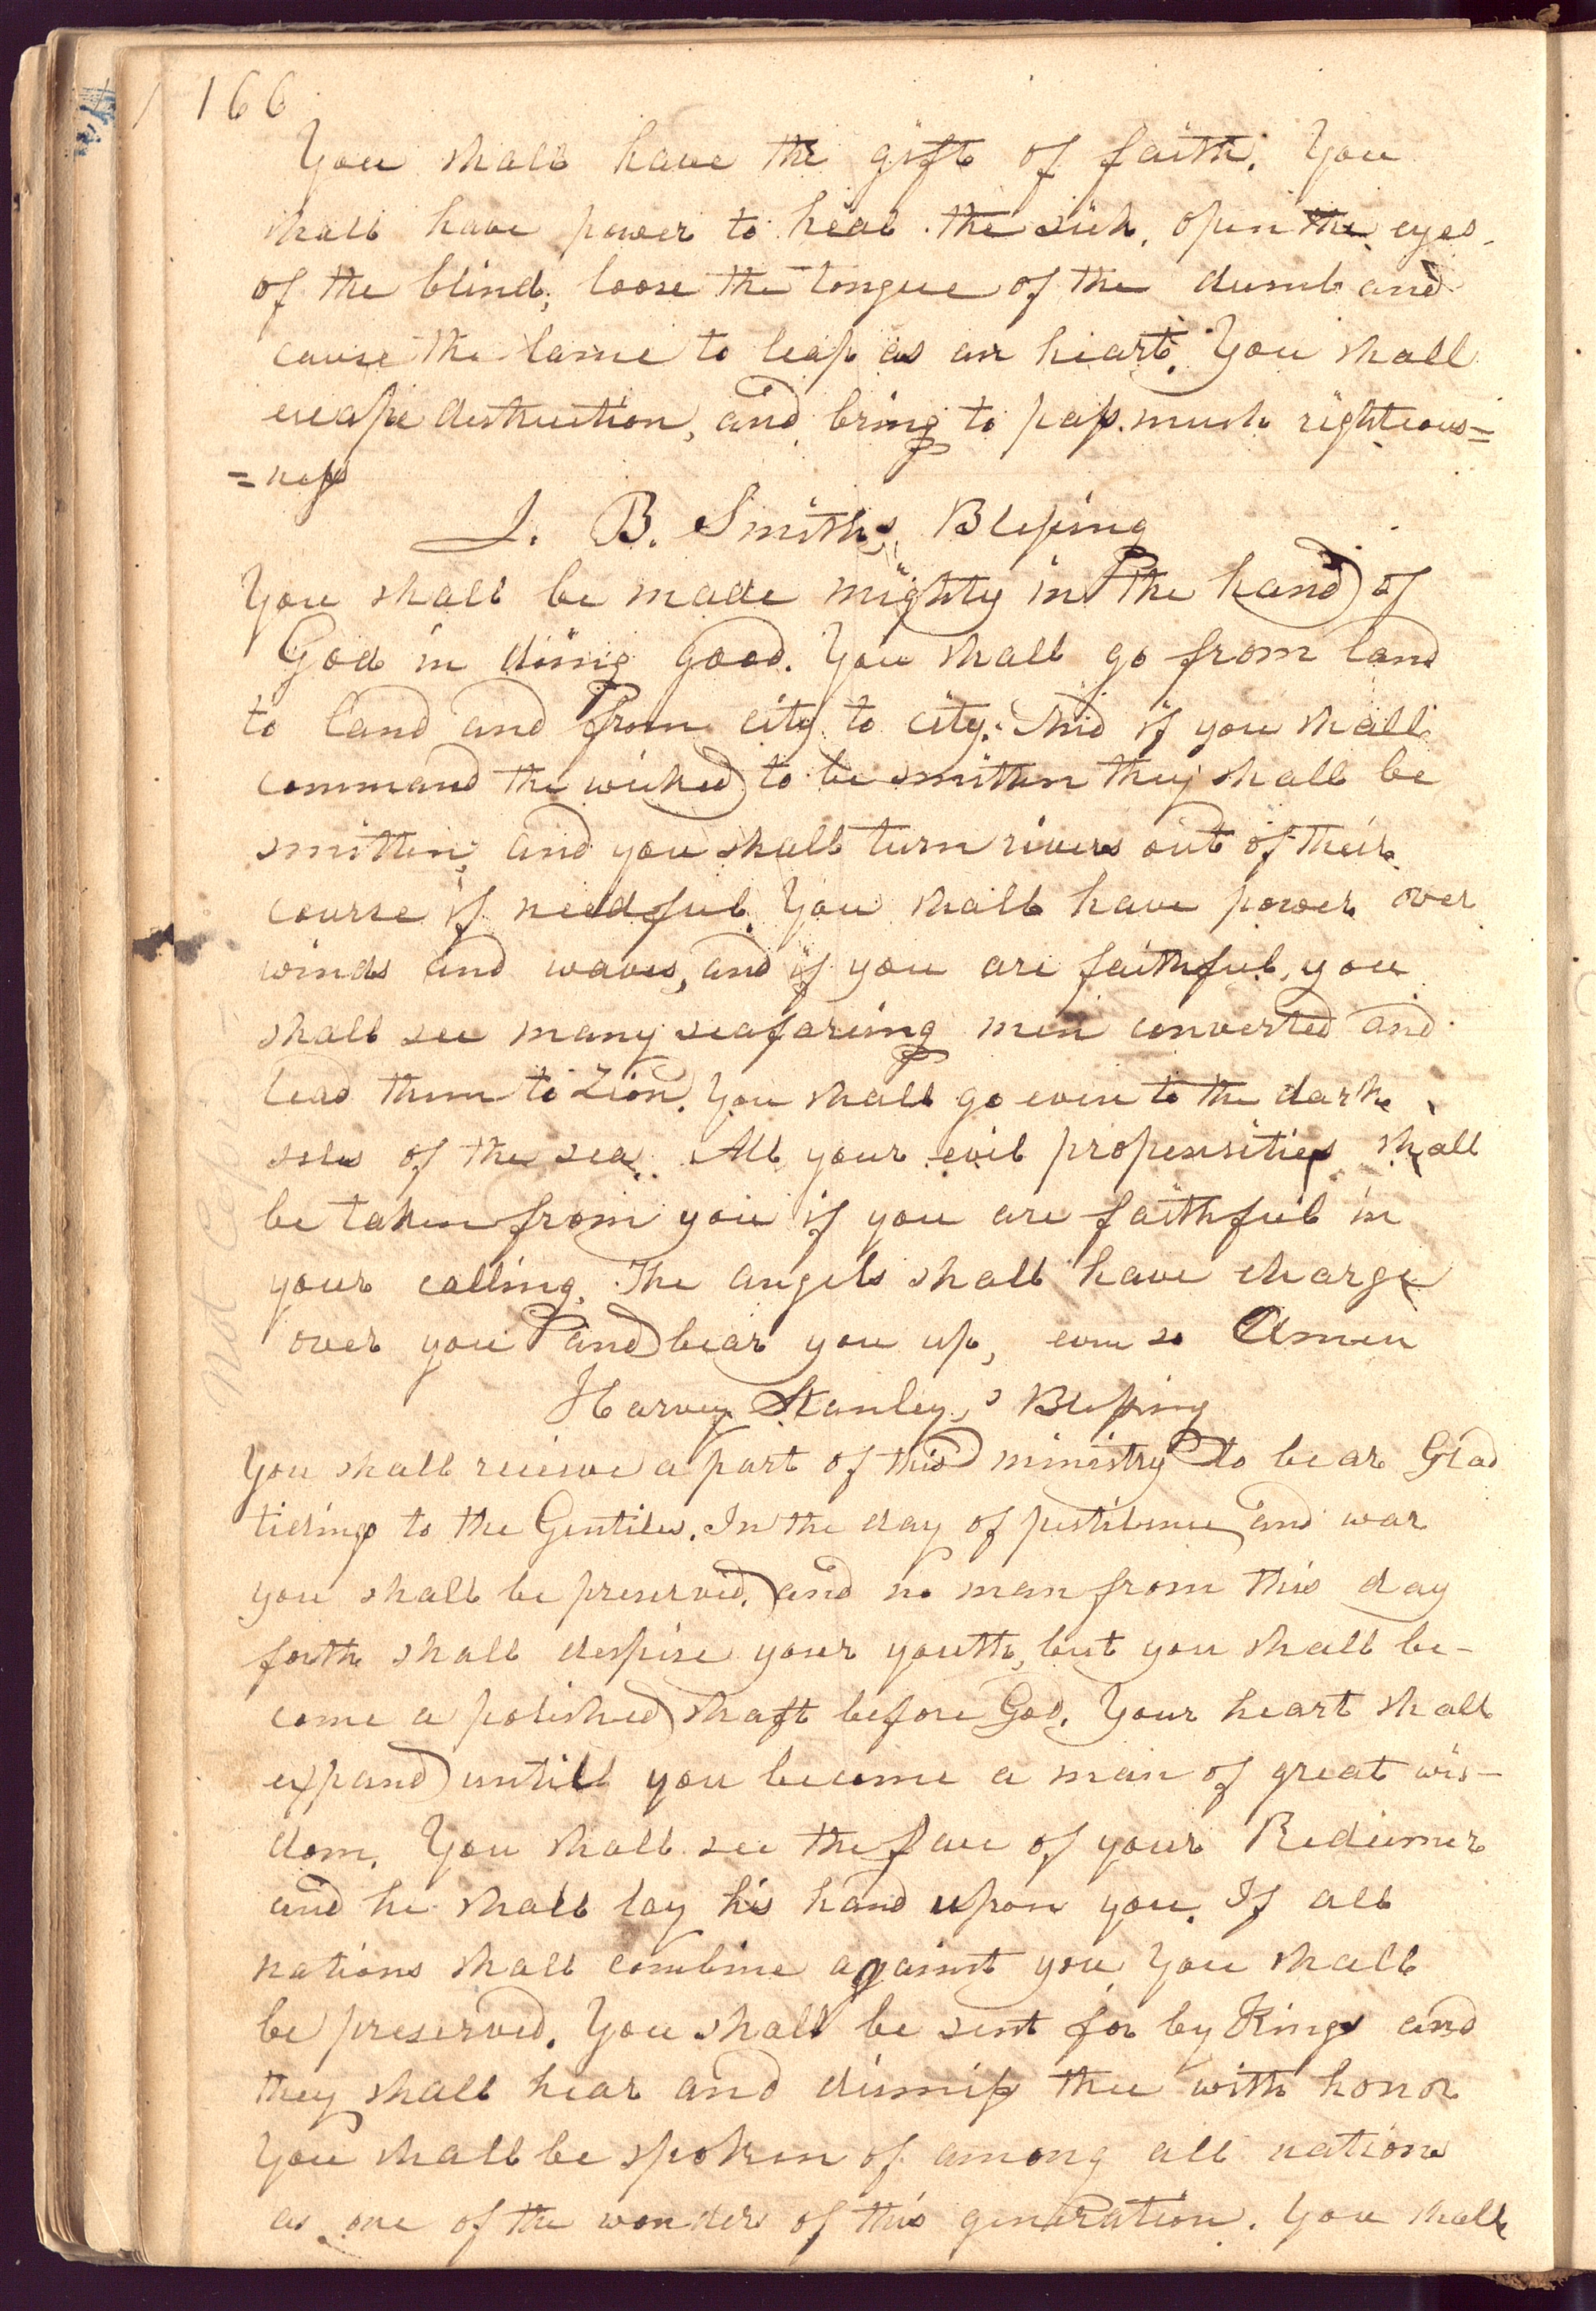 166
You shall have the gift of faith. You
shall have power to heal the sick, open the eyes
of the blind, loose the tongue of the dumb and
cause the lame to leap as an heart. You shall
escape destruction, and bring to pass much righteous=
=ness
J. B. Smith,s Blessing
You shall be made mighty in the hand of
God in doing good. You shall go from land
to land and from city to city. And if you shall
command the wicked to be smitten they shall be
smitten, and you shall turn rivers out of their
course if needful. You shall have power over
winds and waves, and if you are faithful, you
shall see many seafareing men converted and
lead them to Zion. You shall go even to the dark
isles of the sea. All your evil propensities shall
be taken from you if you are faithful in
your calling. The angels shall have charge
over you and bear you up, even so Amen
Harvey Stanley,s Blessing
You shall recieve a part of this ministry to bear Glad
tidings to the Gentiles. In the day of pestilence and war
you shall be preserved, and no man from this day
forth shall despise your youth, but you shall be-
come a polished shaft before God. Your heart shall
expand untill you become a man of great wis-
dom. You shall see the face of your Redeemer
and he shall lay his hand upon you. If all
nations shall combine against you You shall
be preserved. You shall be sent for by Kings and
they shall hear and dismiss thee with honor
You shall be spoken of among all nations
as one of the wonders of this generation. You shall
Not Copi